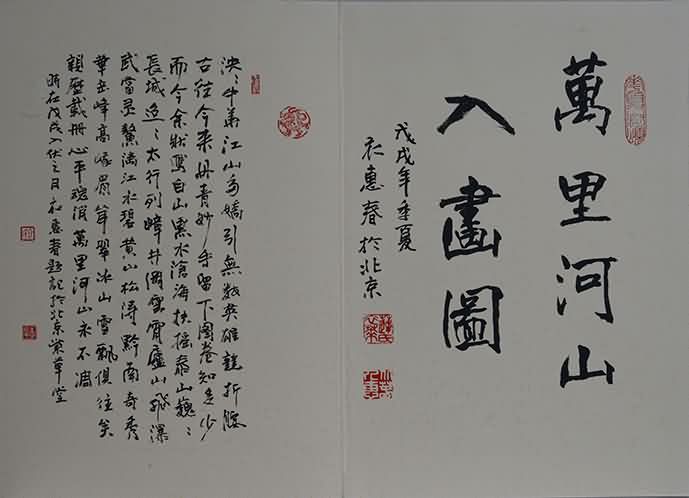 萬里河山
入畫圖
戊戌年季夏
衣惠春於北京
泱〻中華江山多嬌引無數英雄競折腰
古往今來丹青妙手留下圖卷知多少
而今余狀寫白山黑水滄海扶搖泰山巍〻
長城迢〻太行列嶂井岡雲霄廬山飛瀑
武當靈鰲漓江水碧黄山松濤黔南奇秀
華岳峰高峨眉聳翠冰山雪飄俱往矣
親歷載册心平魂潤萬里河山永不凋
時在戊戌入伏之日衣惠春題記於北京草堂